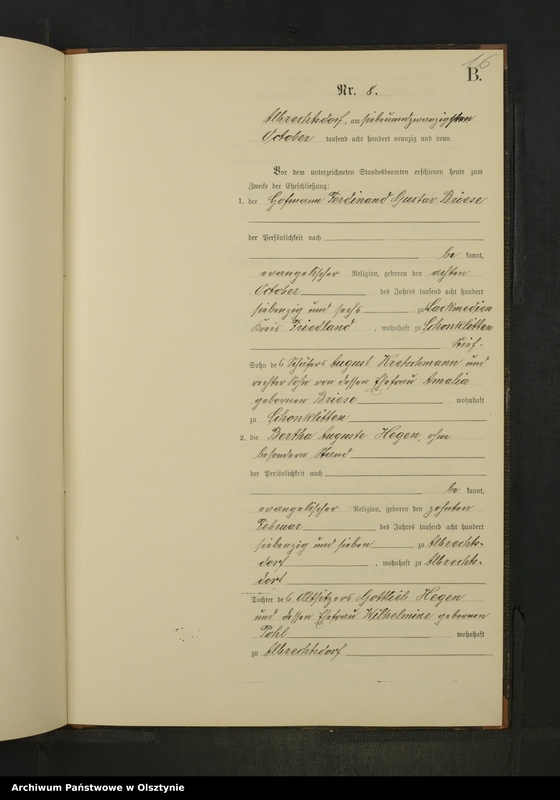 16
B.
Nr. 8.
Albrechtsdorf, am siebenundzwanzigsten
October tausend acht hundert neunzig und neun.
Vor dem unterzeichneten Standesbeamten erschienen heute zum
Zwecke der Eheschließung:
1. der Hofmann Ferdinand Gustav Briese
der Persönlichkeit nach
be kannt,
evangelischer Religion, geboren den achten
October des Jahres tausend acht hundert
siebenzig und sechs zu Lackmedien
Kreis Friedland, wohnhaft zu Schönklitten
Stief-
Sohn des Schäfers August Kretschmann und
rechter Sohn von dessen Ehefrau Amalia
gebornen Briese wohnhaft
zu Schönklitten
2. die Bertha Auguste Hegen, ohne
besondern Stand
der Persönlichkeit nach
be kannt,
evangelischer Religion, geboren den zehnten
Februar des Jahres tausend acht hundert
siebenzig und sieben zu Albrechts-
dorf, wohnhaft zu Albrechts-
dorf
Tochter des Altsitzers Gottlieb Hegen
und dessen Ehefrau Wilhelmine gebornen
Pohl wohnhaft
zu Albrechtsdorf
Archiwum Państwowe w Olsztynie